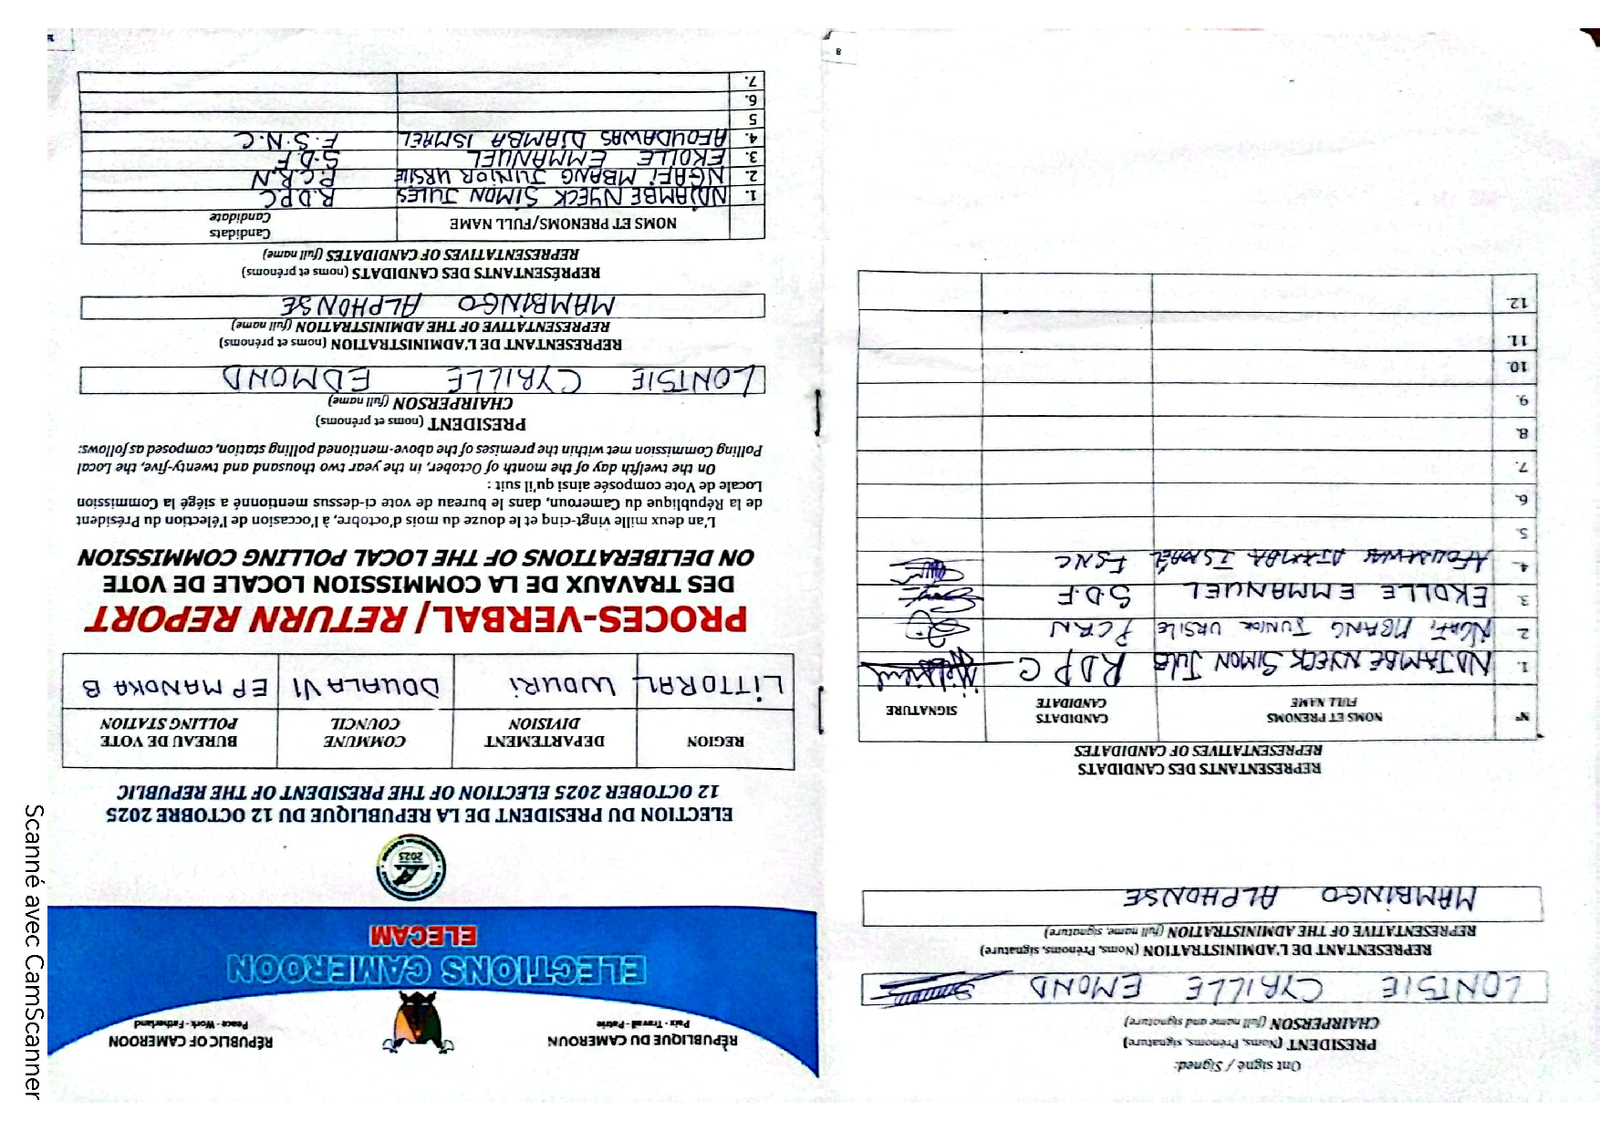 RÉPUBLIQUE DU CAMEROUN
Paix - Travail - Patrie
RÉPUBLIC OF CAMEROON
Peace - Work - Fatherland
ELECTIONS CAMEROON
ELECAM
2025
ELECTION DU PRESIDENT DE LA REPUBLIQUE DU 12 OCTOBRE 2025
12 OCTOBER 2025 ELECTION OF THE PRESIDENT OF THE REPUBLIC
REGION DEPARTEMENT DIVISION COMMUNE COUNCIL BUREAU DE VOTE POLLING STATION
LITTORAL WOURI DOUALA VI EP MANOKA B
PROCES-VERBAL/ RETURN REPORT
DES TRAVAUX DE LA COMMISSION LOCALE DE VOTE
ON DELIBERATIONS OF THE LOCAL POLLING COMMISSION
L'an deux mille vingt-cinq et le douze du mois d'octobre, à l'occasion de l'élection du Président
de la République du Cameroun, dans le bureau de vote ci-dessus mentionné a siégé la Commission
Locale de Vote composée ainsi qu'il suit :
On the twelfth day of the month of October, in the year two thousand and twenty-five, the Local
Polling Commission met within the premises of the above-mentioned polling station, composed as follows:
PRESIDENT (noms et prénoms)
CHAIRPERSON (full name)
LONTSIE CYRILLE EDMOND
REPRESENTANT DE L'ADMINISTRATION (noms et prénoms)
REPRESENTATIVE OF THE ADMINISTRATION (full name)
MAMBINGO ALPHONSE
REPRÉSENTANTS DES CANDIDATS (noms et prénoms)
REPRESENTATIVES OF CANDIDATES (full name)
NOMS ET PRENOMS/FULL NAME Candidats Candidate
1. NDJAMBE NYECK SIMON JULES R.D.P.C
2. NGAFI MBANG JUNIOR URSILE P.C.R.N
3. EKOLLE EMMANUEL S.D.F
4. AFOUDAWAS DJAMBA ISMAEL F.S.N.C
5
6.
7.
Ont signé / Signed:
PRESIDENT (Noms, Prénoms, signature)
CHAIRPERSON (full name and signature)
LONTSIE CYRILLE EMOND
REPRESENTANT DE L'ADMINISTRATION (Noms, Prénoms, signature)
REPRESENTATIVE OF THE ADMINISTRATION (full name, signature)
MAMBINGO ALPHONSE
REPRESENTANTS DES CANDIDATS
REPRESENTATIVES OF CANDIDATES
N° NOMS ET PRENOMS FULL NAME CANDIDATS CANDIDATE SIGNATURE
1. NDJAMBE NYECK SIMON JULES RDPC
2 NGAFI MBANG JUNIOR URSILE PCRN
3 EKOLLE EMMANUEL S.D.F
4. DJAMBA ISMAËL FSNC
5.
6.
7.
8.
9.
10.
11.
12.
8
Scanné avec CamScanner